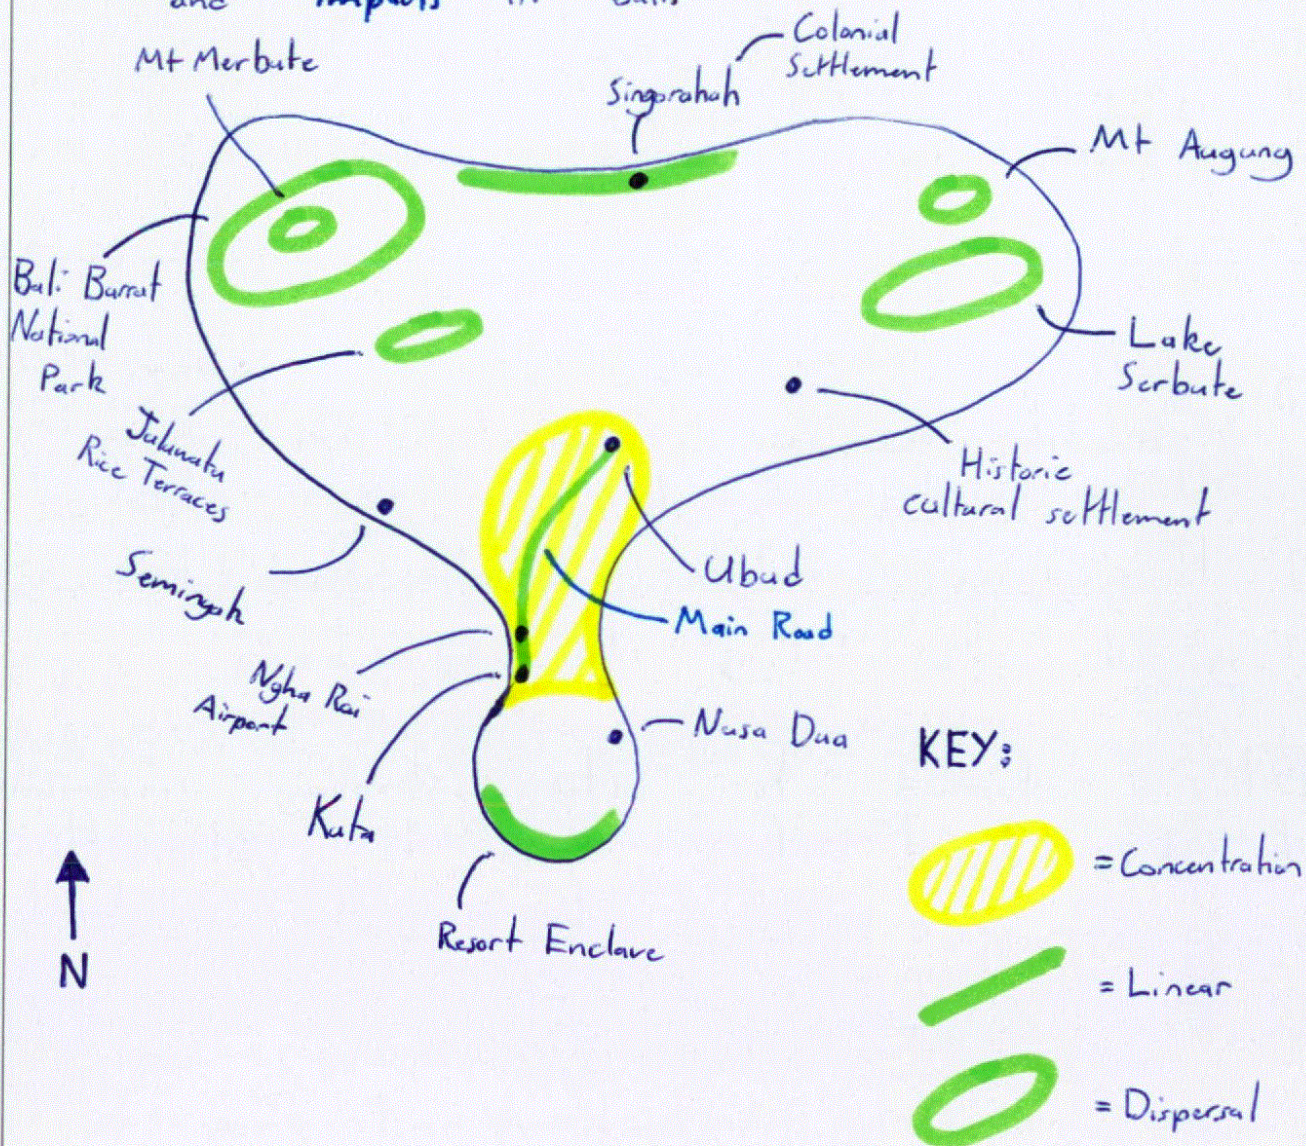 and impacts in Bali
Mt Merbute
Colonial
Settlement
Singarahah
Mt Augung
Bali Barrat
National
Park
Lake
Serbute
Jaluwatu
Rice Terraces
Historic
cultural settlement
Seminyah
Ubud
Main Road
Ngha Rai
Airport
Nusa Dua
KEY:
Kuta
= Concentration
Resort Enclave
N
= Linear
= Dispersal